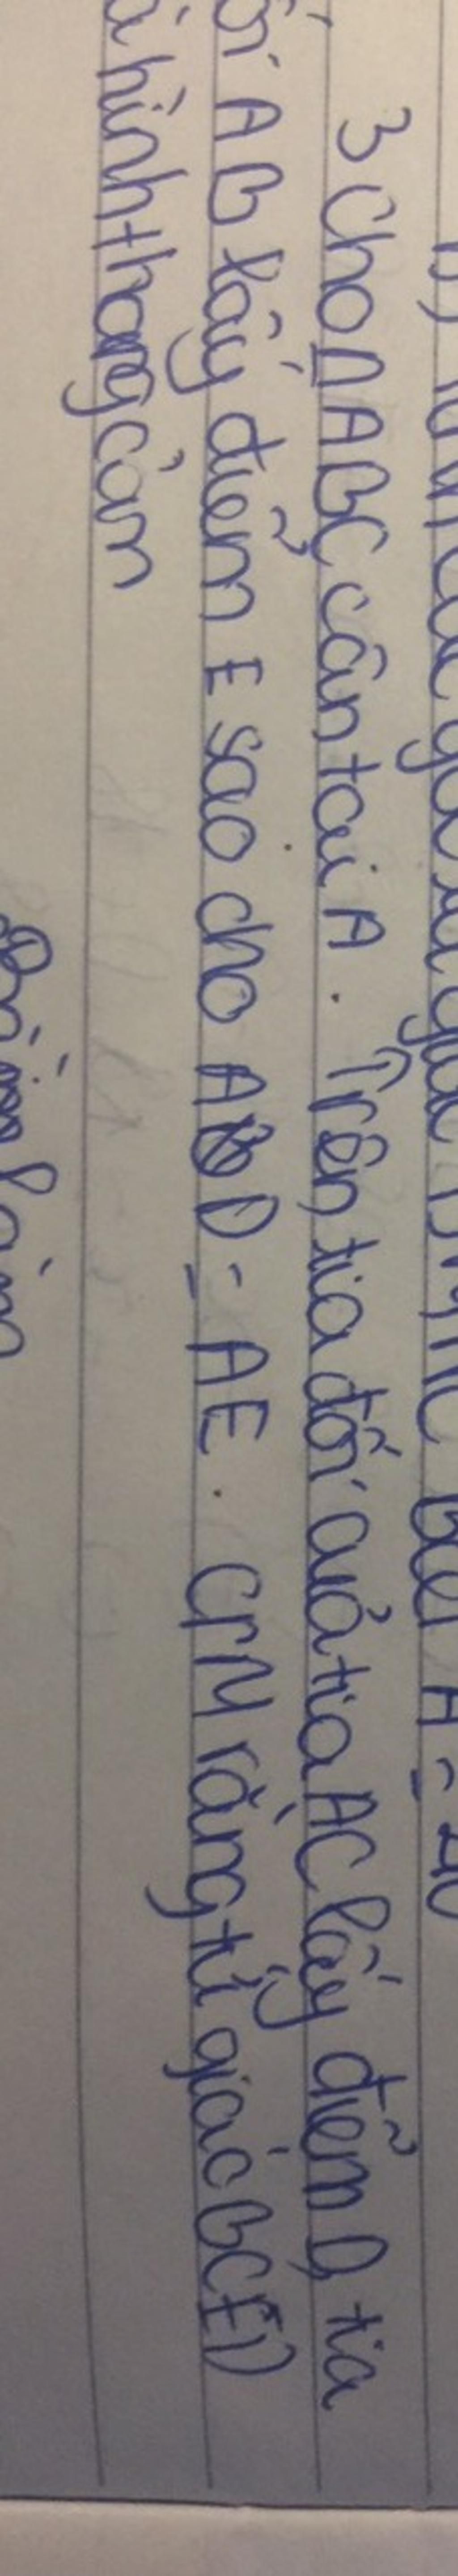 A = 40
3 Cho Δ ABC cân tại A. Trên tia đối của tia AC lấy điểm D, tia
đối AB lấy điểm E sao cho AD = AE. CM rằng tứ giác BCED
là hình thang cân
Bài làm